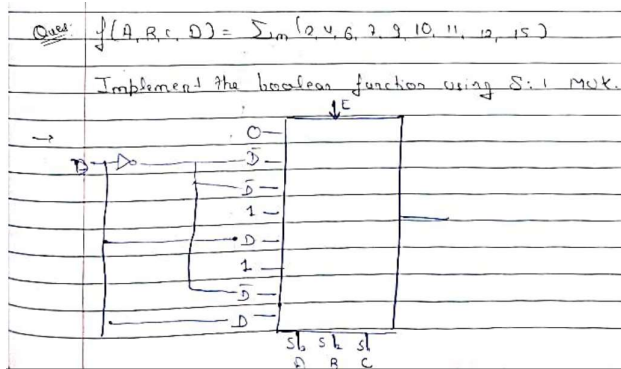 Ques: f(A, B, C, D) = Σm (2, 4, 6, 7, 9, 10, 11, 12, 15)
Implement the boolean function using 8:1 MUX.
→
E
0
D D̄
D̄
1
D
1
D̄
D
S S S
A B C